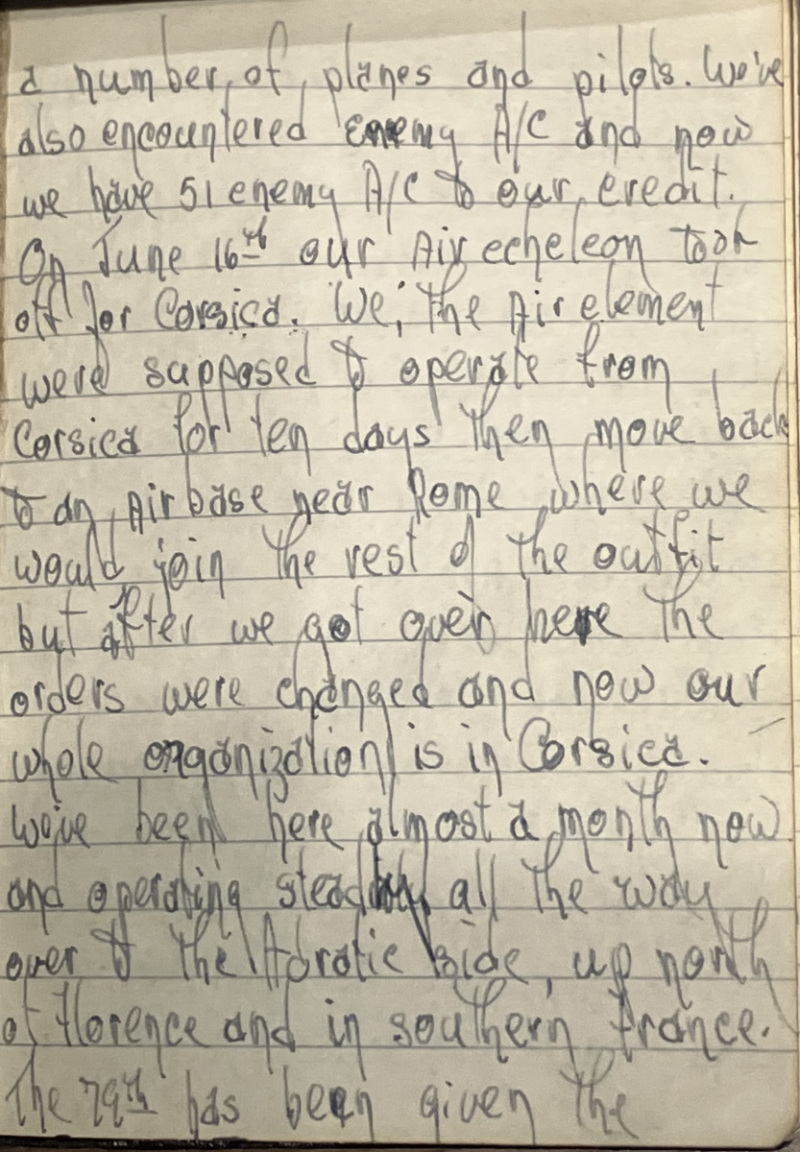 a number of planes and pilots. We've
also encountered enemy A/C and now
we have 51 enemy A/C to our credit.
On June 16th our Air echeleon took
off for Corsica. We, the Air element
were supposed to operate from
Corsica for ten days then move back
to an Air base near Rome where we
would join the rest of the outfit
but after we got over here the
orders were changed and now our
whole organization is in Corsica.
We've been here almost a month now
and operating steadily all the way
over to the Adratic side, up north
of Florence and in southern France.
The 79th has been given the